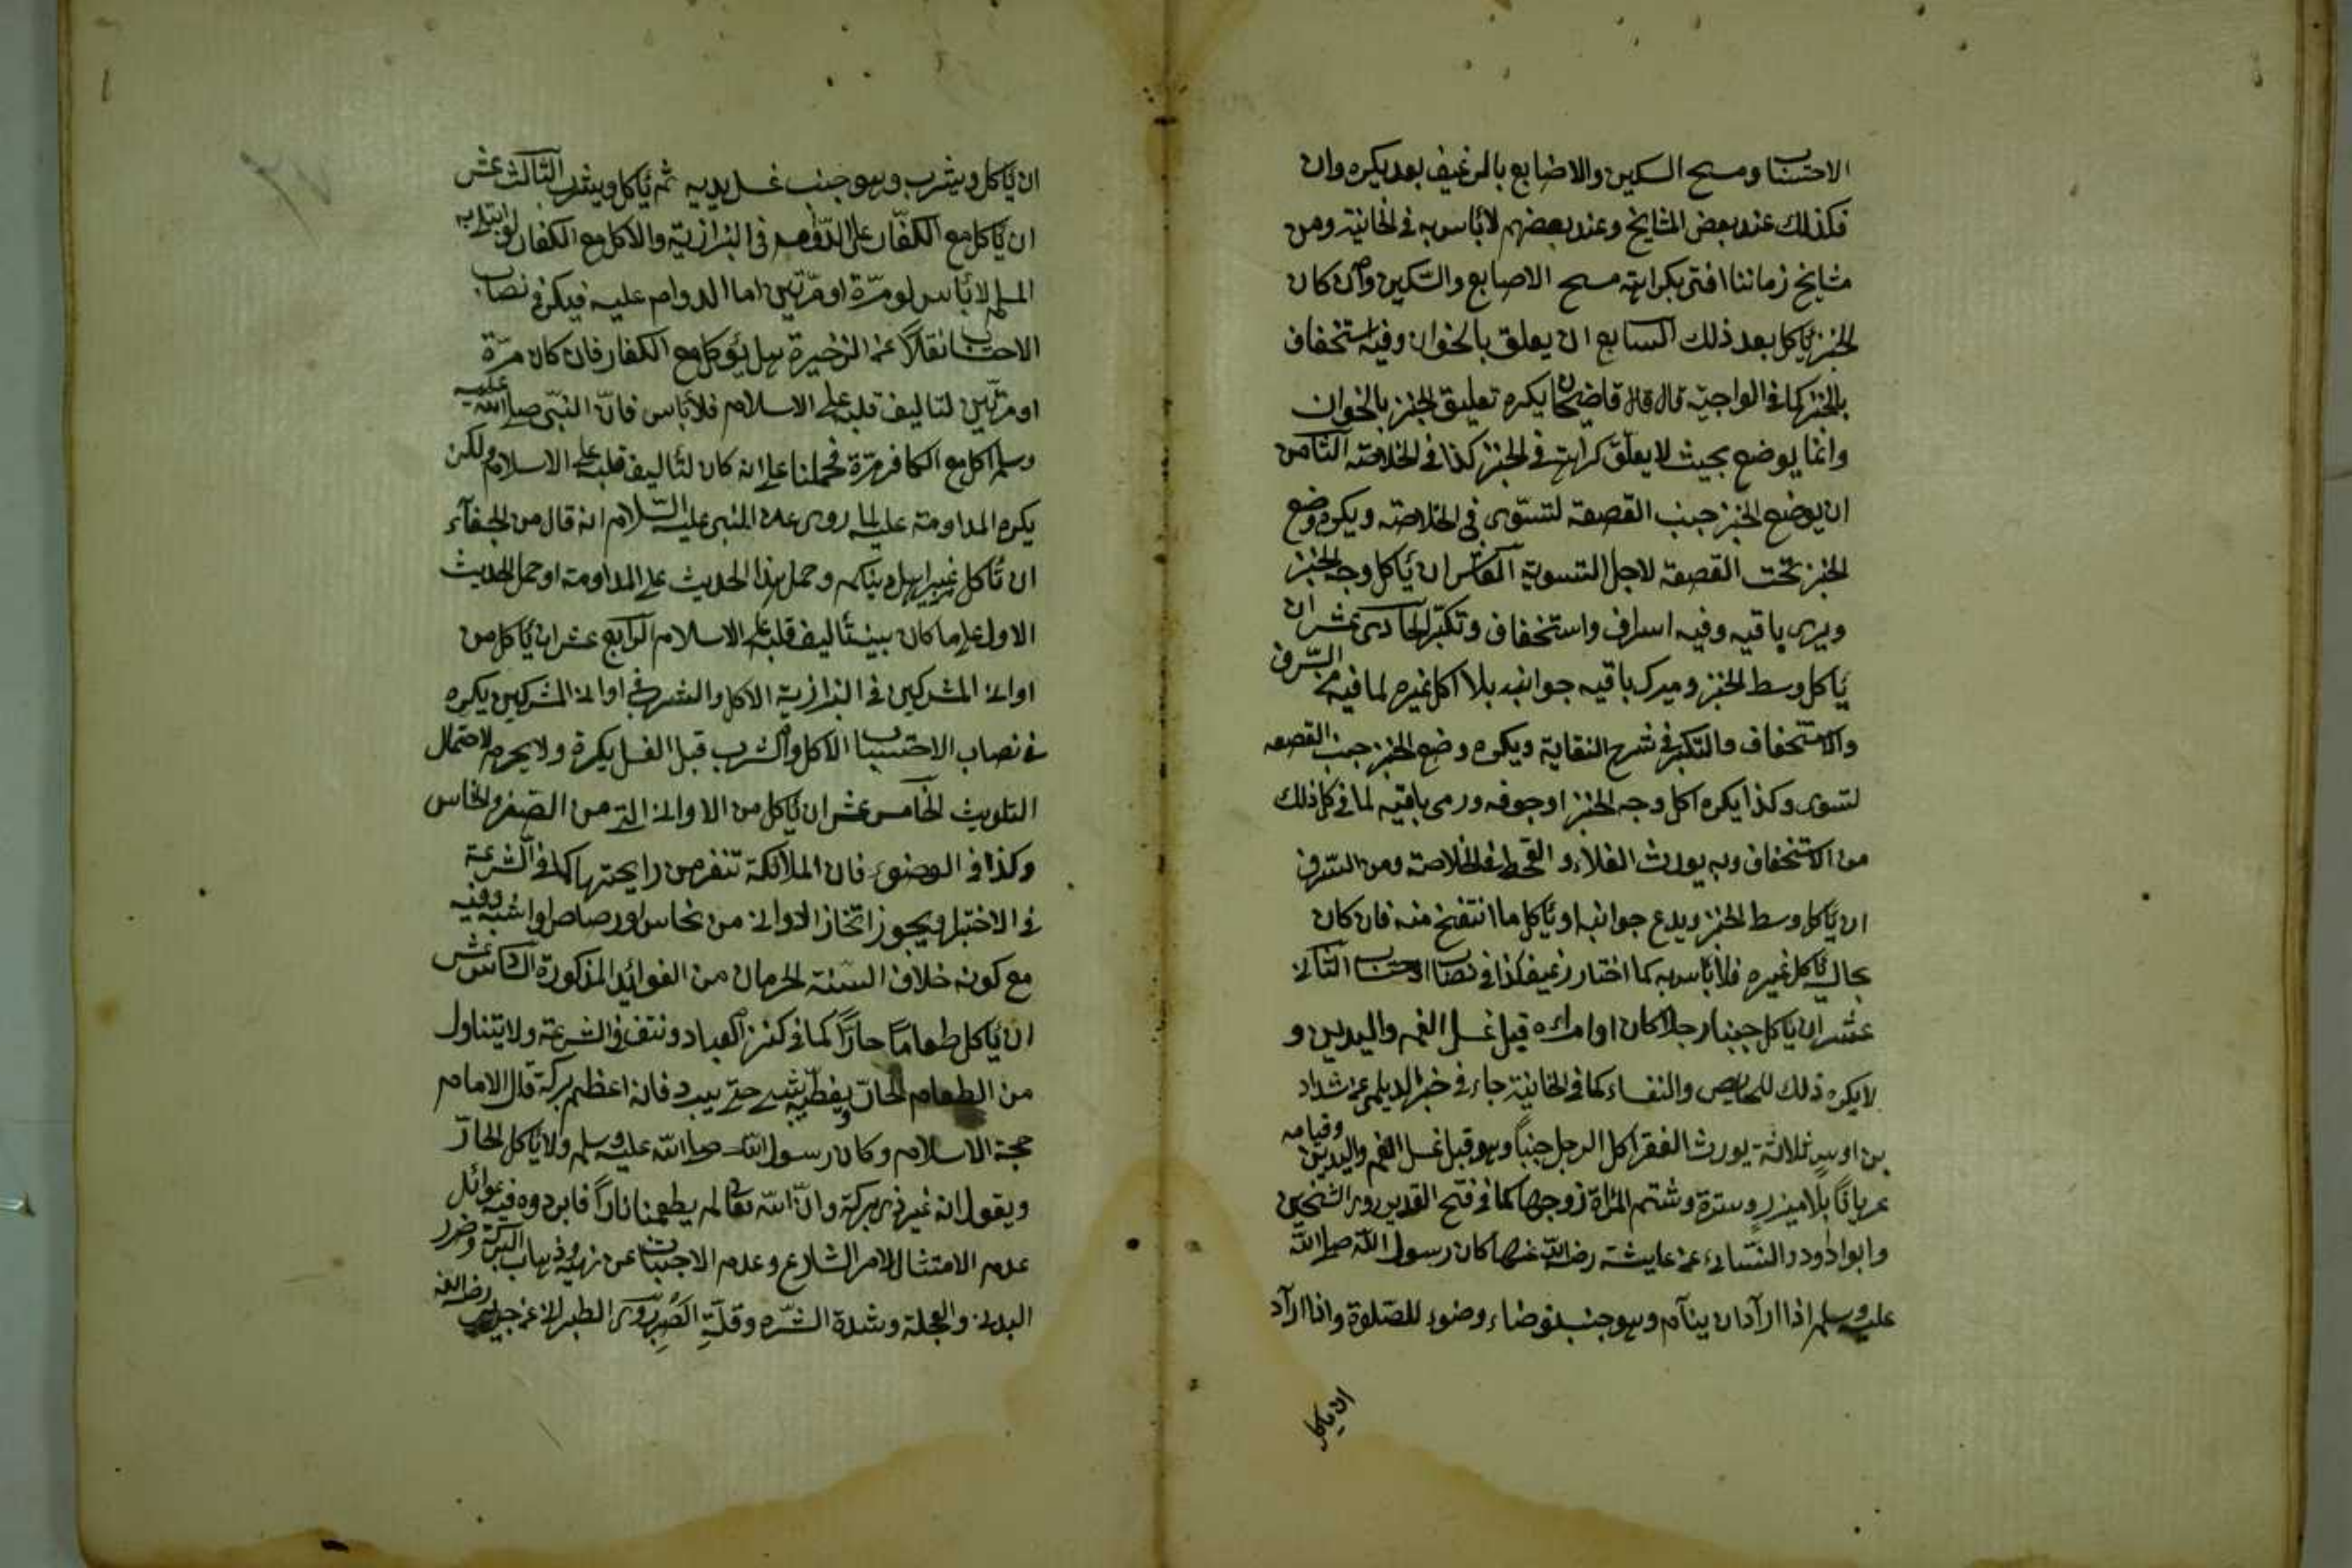 الاحتساب ومسح السكين والاصابع بالرغيف بعد يكره وان
فكذلك عند بعض المشايخ وعند بعضهم لا بأس به في الخانية ومن
مشايخ زماننا افتى بكراهة مسح الاصابع والسكين وان كان
الخبز يأكل بعد ذلك السابع ان يعلق بالخوان وفيه استخفاف
بالخبز كما في الواجية قال قال قاضيخان يكره تعليق الخبز بالخوان
وانما يوضع بحيث لا يعلق كراهة في الخبز كذا في الخلاصة الثامن
ان يوضع الخبز جنب القصعة لتسوى في الخلاصة ويكره وضع
الخبز تحت القصعة لاجل التسوية العاشر ان يأكل وجه الخبز
ويرى باقيه وفيه اسراف واستخفاف وتكبر الحادى عشر ان
يأكل وسط الخبز ويترك باقيه جوانبه بلا اكل غيره لما فيه من السرف
والاستخفاف والتكبر في شرح النقاية ويكره وضع الخبز جنب القصعه
لتسوى وكذا يكره اكل وجه الخبز او جوفه ورمى باقيه لما في كل ذلك
من الاستخفاف وبه يورث الغلاء و القحط في الخلاصة ومن السرف
ان يأكل وسط الخبز ويدع جوانبه او يأكل ما انتفخ منه فان كان
بحال يأكل غيره فلا بأس به كما اختار رغيف كذا في نصاب الاحتساب الثانى
عشر ان يأكل جنبا رجلا كان او امراءه قبل غسل الفم واليدين و
لا يكره ذلك للحايض والنفساء كما في الخانية جاء في خبر الديلمى عن شداد
بن اوس ثلاثة يورث الفقر اكل الرجل جنباً وهو قبل غسل الفم واليدين وقيامه
عرياناً بلا ميزر وسترة وشتم المرأة زوجها كما في فتح القدير روى الشيخين
وابو اداود والنسائى عن عايشة رضى الله عنها كان رسول الله صلى الله
عليه وسلم اذا اراد ان ينام وهو جنب توضاء وضوء للصلوة واذا اراد
ان يأكل
ان يأكل ويشرب وهو جنب غسل يديه ثم يأكل ويشرب الثالث عشر
ان يأكل مع الكفّار على الدوام في البزازية والاكل مع الكفار لو ابتلى به
المسلم لا بأس لو مرّة او مرّتين اما الدوام عليه فيكره في نصاب
الاحتساب نقلاً عن الذخيرة هل يؤكل مع الكفار فان كان مرّة
او مرتين لتاليف قلبه على الاسلام فلا بأس فانّ النبّى صلى الله عليه
وسلم اكل مع الكافر مرّة فحملنا على انه كان لتأليف قلبه على الاسلام ولكن
يكره المداومة عليه لما روى عن النبى عليه السّلام انه قال من الجفآء
ان تأكل غير اهل دينكم وحمل هذا الحديث على المداومة او حمل الحديث
الاول على ما كان بنية تأليف قلبه على الاسلام الرابع عشر ان يأكل من
اوانى المشركين في البزازية الاكل والشرب في اوانى المشركين يكره
في نصاب الاحتساب الاكل والشرب قبل الغسل يكره ولا يحرم لاحتمال
التلويث الخامس عشر ان يأكل من الاوانى التى من الصفر والنحاس
وكذا في الوضوء فان الملائكة تنفر من رايحتها كما في الشرعة
في الاختيار ويجوز اتخاذ الاوانى من نحاس او رصاص او شبه وفيه
مع كونه خلاف السنة لحرمان من الفوائد المذكورة السادس عشر
ان يأكل طعاماً حاراً كما في كنز العباد ونتف في الشرعة ولا يتناول
من الطعام الحارّ ويغطّيه بشئ حتى يبرد فانه اعظم بركة قال الامام
حجة الاسلام وكان رسول الله صلى الله عليه وسلم ولا يأكل الحارّ
ويقول انه غير ذى بركة وانّ الله تعالى لم يطعمنا ناراً فابردوه فيه غوائل
عدم الامتثال لامر الشارع وعدم الاجتناب عن نهيه وذهاب البركة وضرر
البدن والعجلة وشدة الشره وقلّة الصبر روى الطبرانى عن رضى الله